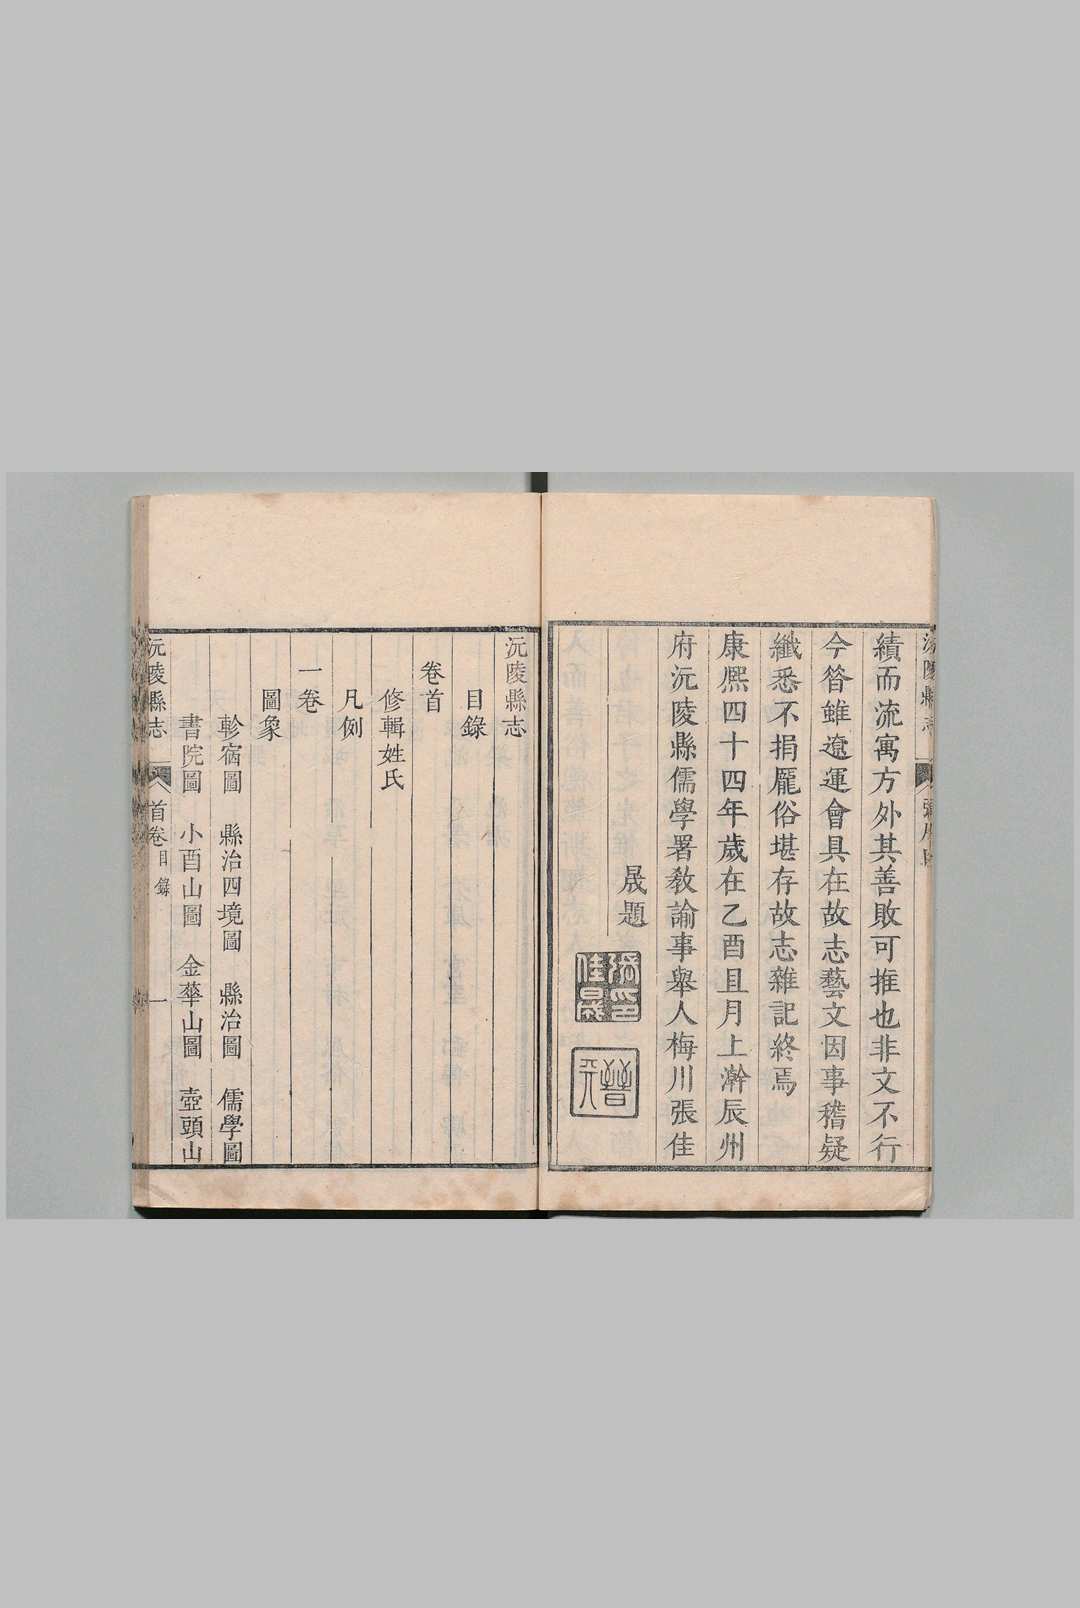 績而流寓方外其善敗可推也非文不行
今簪雖遼運會具在故志藝文因事稽疑
纖悉不捐厖俗堪存故志雜記終焉
康熙四十四年歲在乙酉且月上澣辰州
府沅陵縣儒學署教諭事舉人梅川張佳
晟題
張印佳晟
沅陵縣志
目錄
卷首
修輯姓氏
凡例
一卷
圖象
軫宿圖 縣治四境圖 縣治圖 儒學圖
書院圖 小酉山圖 金華山圖 壺頭山
沅陵縣志 首卷 目錄 一